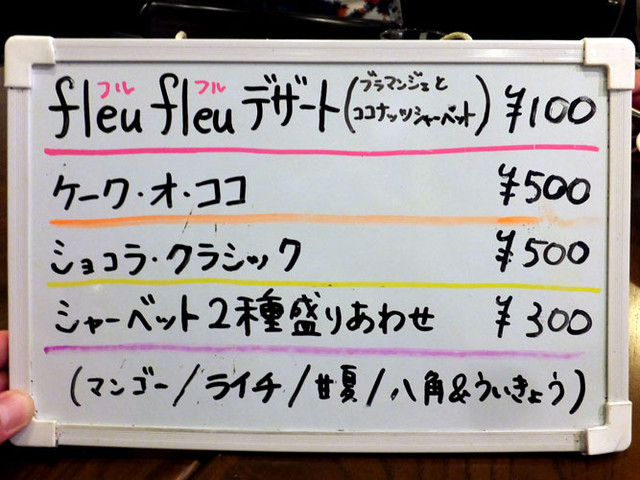 フル フル
fleu fleu デザート (ブラマンジェと ココナッツシャーベット) ¥100
ケーク・オ・ココ ¥500
ショコラ・クラシック ¥500
シャーベット2種盛りあわせ ¥300
(マンゴー/ライチ/甘夏/八角&ういきょう)